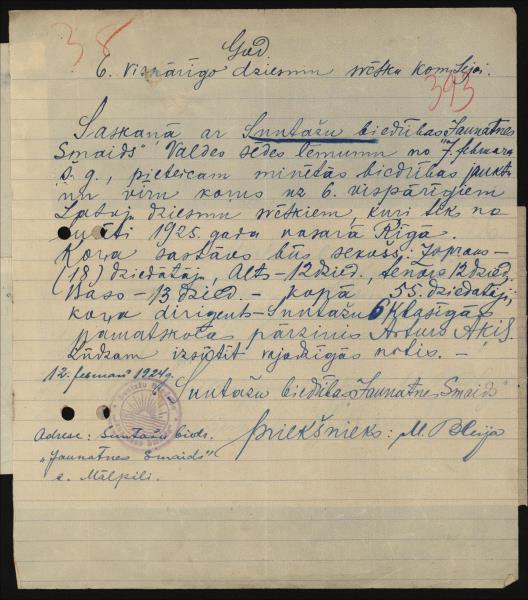 38
God.
6. Vispārīgo dziesmu svētku komisijai.
393
Saskaņā ar Suntažu biedrības „Jaunatnes
Smaids" Valdes sēdes lēmumu no 7. februara
s. g., pieteicam minētās biedrības jauktu
un vīru korus uz 6. vispārīgiem
Latvju dziesmu svētkiem, kuri tiks no
svinēti 1925. gada vasarā Rīgā.
Kora sastāvs būs sekošs: Soprans-
(18) dziedātāji, Alts-12 dzied., tenors 12 dzied.
Bass - 13 dzied - kopā 55. dziedātāji,
kora dirigents - Suntažu 6 klasīgās
pamatskolas pārzinis Arturs
Lūdzam izsūtīt vajadzīgās notis. -
12. februarī 1924 g.
Suntažu biedrības „Jaunatnes Smaids"
Adrese: Suntažu biedr.
Priekšnieks: M.
„Jaunatnes Smaids"
c. Mālpili.